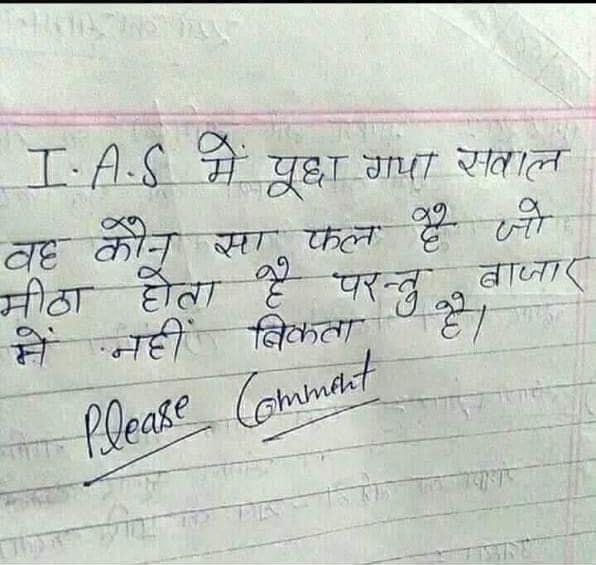 I.A.S में पूछा गया सवाल
वह कौन सा फल है जो
मीठा होता है परन्तु बाजार
में नहीं बिकता है।
Please Comment